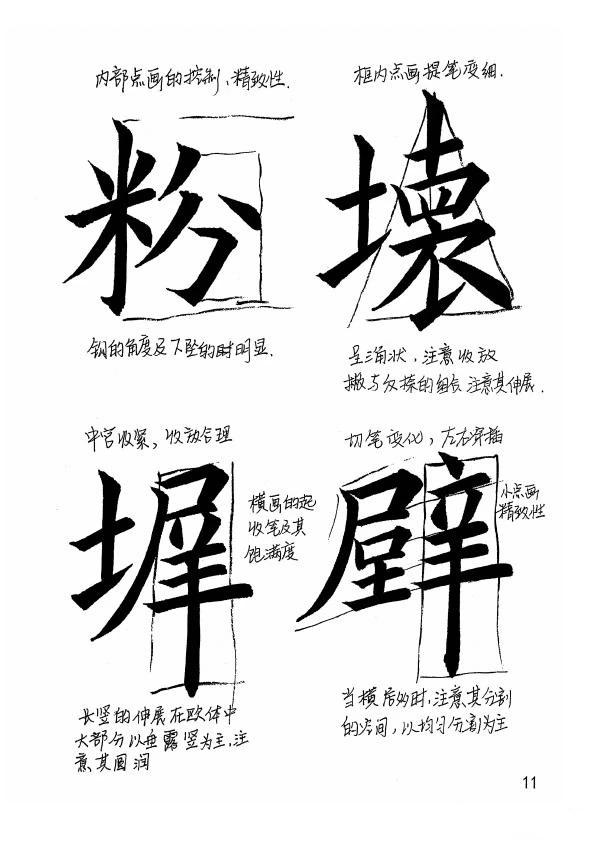 内部点画的控制、精致性.
框内点画提笔变细.
粉
壊
钩的角度及下坠的时明显.
呈三角状，注意收放
撇与反捺的组合 注意其伸展.
中宫收紧，收放合理
切笔变化，左右穿插
墀
壁
横画的起
收笔及其
饱满度
小点画
精致性
长竖的伸展在欧体中
大部分以垂露竖为主,注
意其圆润
当横居多时,注意其分割
的空间，以均匀分割为主
11